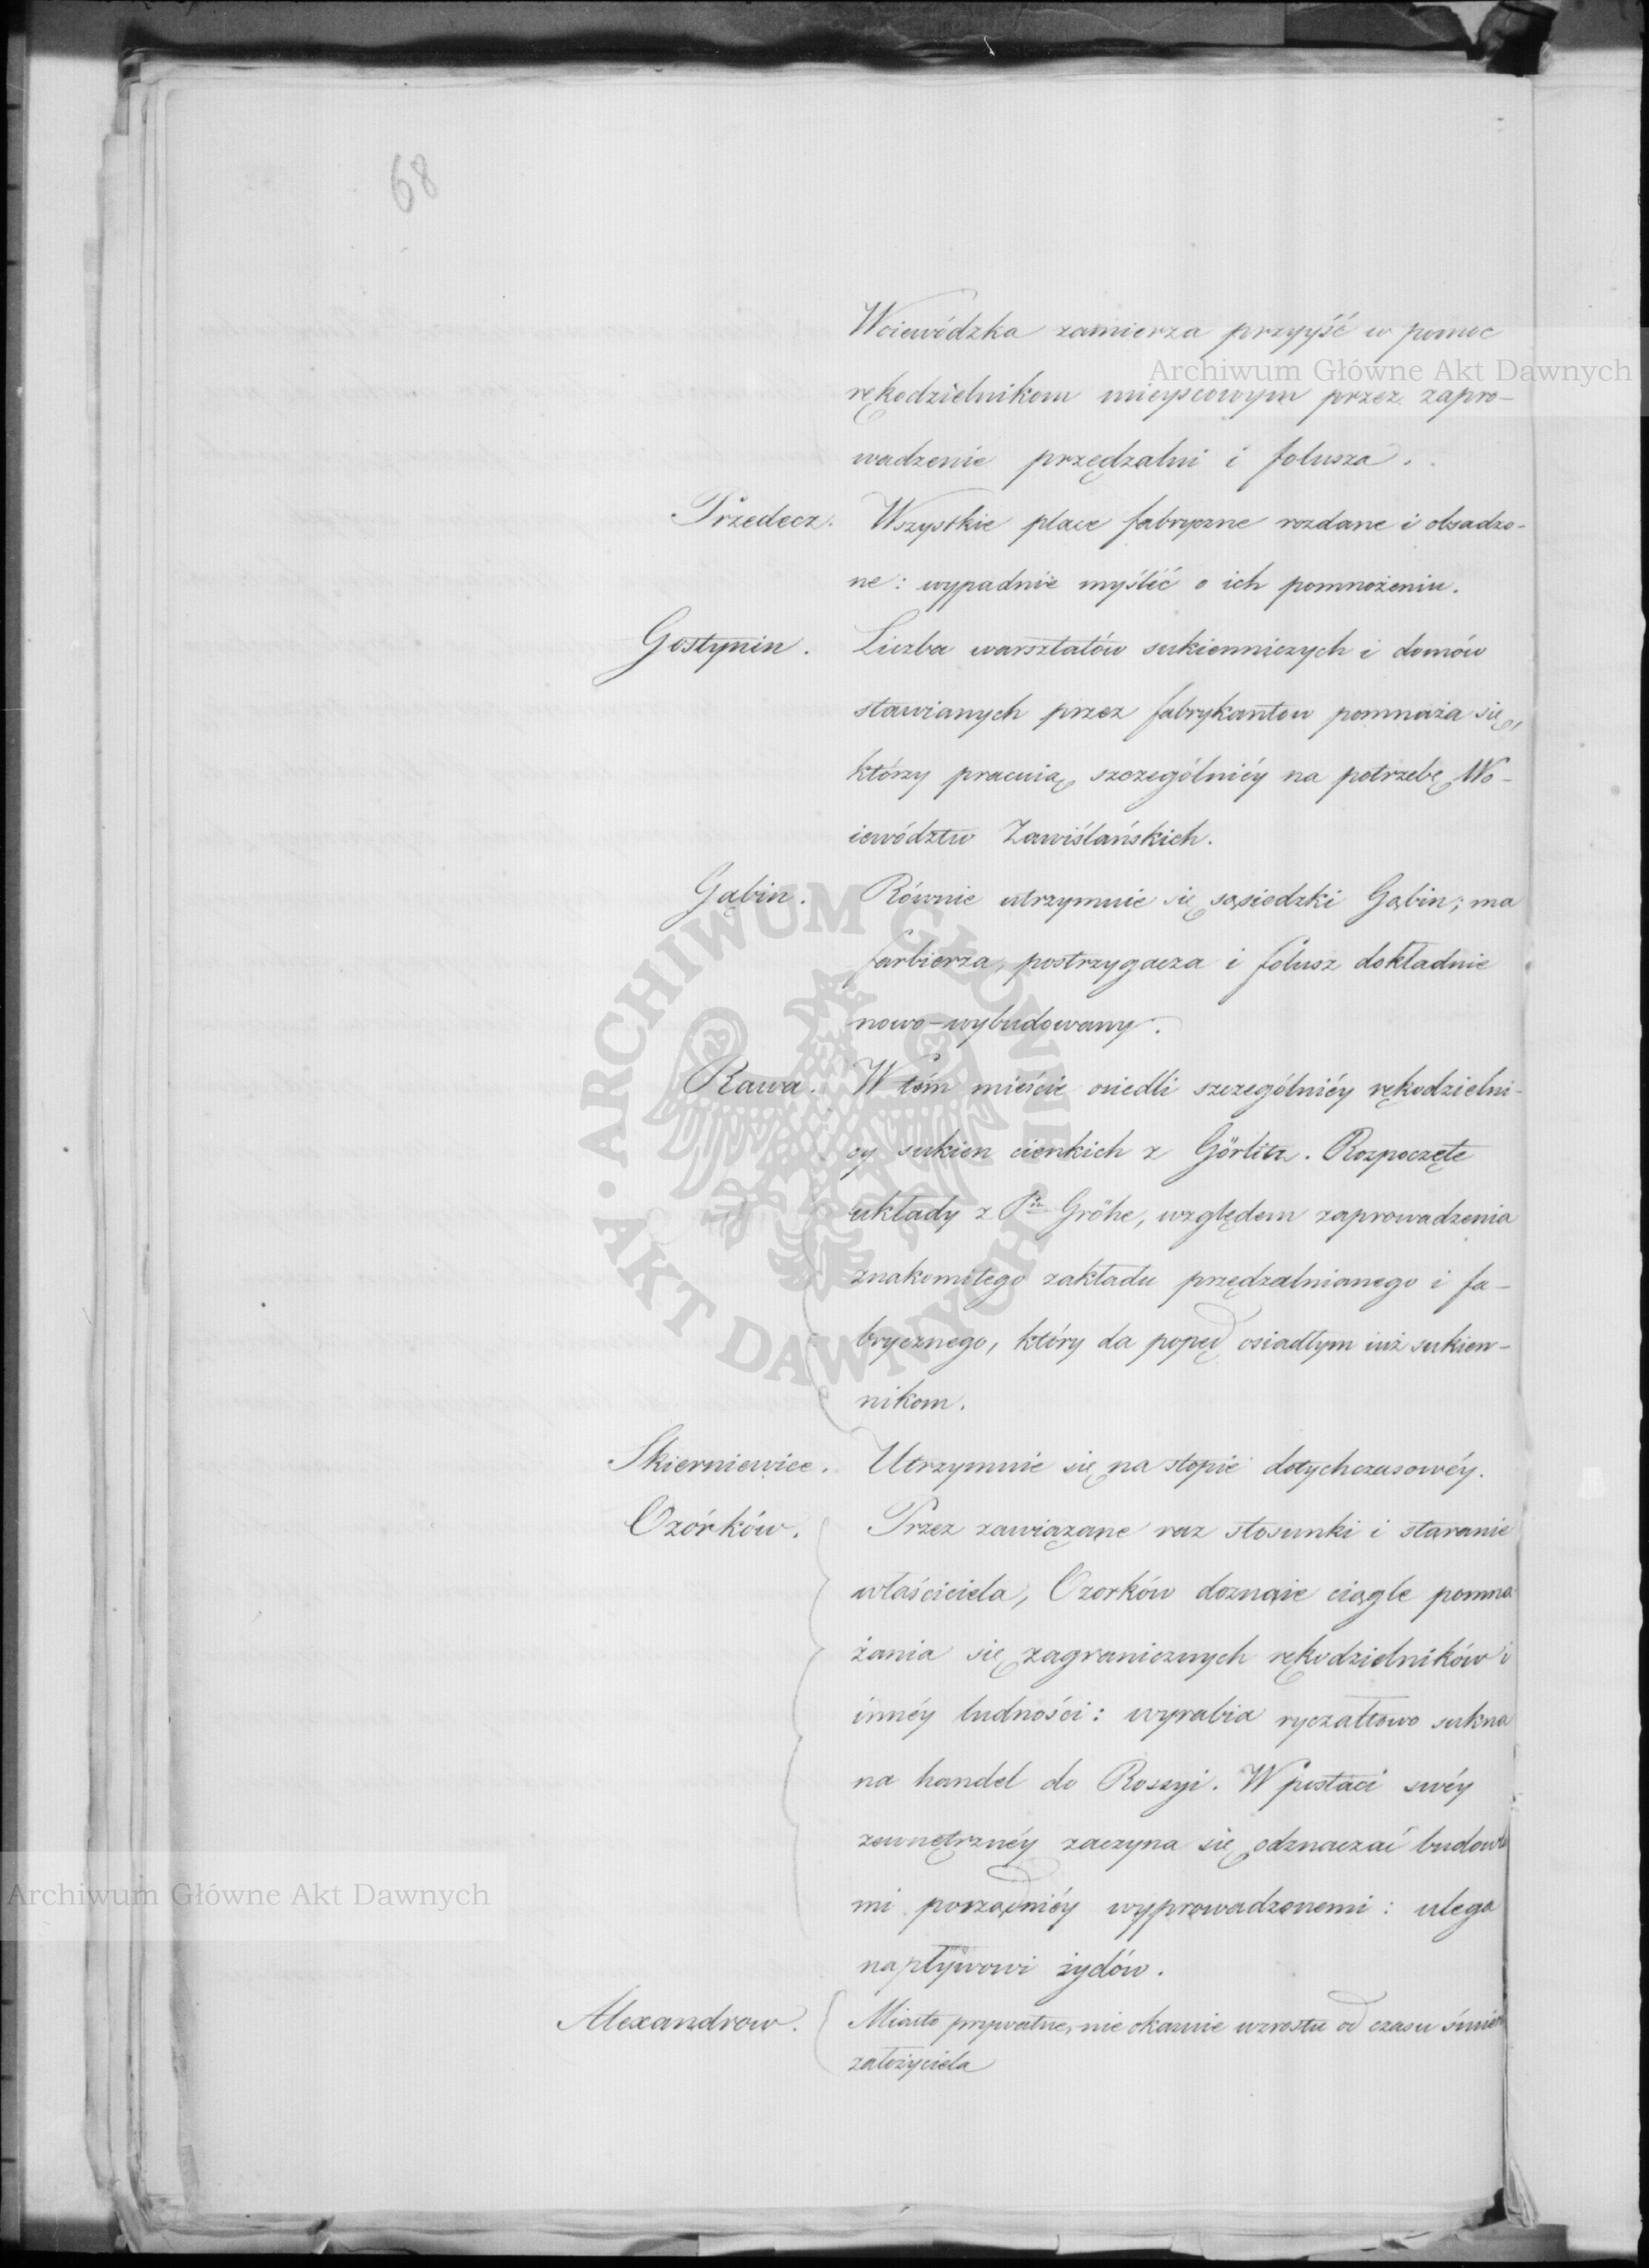 68
Woiewódzka zamierza przyyść w pomoc
Archiwum Główne Akt Dawnych
rękodzielnikom mieyscowym przez zapro-
wadzenie przędzalni i folusza.
Przedecz. Wszystkie place fabryczne rozdane i obsadzo-
ne: wypadnie myślić o ich pomnożeniu.
Gostynin. Liczba warsztatów sukienniczych i domów
stawianych przez fabrykantow pomnaża się,
którzy pracuią szczególniéy na potrzebę Wo-
iewództw Zawiślańskich.
Gąbin. Równie utrzymuie się sąsiedzki Gąbin; ma
farbierza, postrzygacza i folusz dokładnie
nowo-wybudowany.
Rawa. W tém mieście osiedli szczególniéy rękodzielni-
cy sukien cienkich z Görlitz. Rozpoczęte
układy z Pn Gröhe, względem zaprowadzenia
znakomitego zakładu przędzalnianego i fa-
brycznego, który da popęd osiadłym iuż sukien-
nikom.
ARCHIWUM GŁÓWNE • AKT DAWNYCH •
Skierniewice. Utrzymuie się na stopie dotychczasowéy.
Ozórków. Przez zawiązane raz stosunki i staranie
właściciela, Ozorków doznaie ciągle pomna
żania się zagranicznych rękodzielników i
innéy ludności: wyrabia ryczałtowo sukna
na handel do Rossyi. W postaci swéy
zewnętrznéy zaczyna się odznaczać budowl
mi porządniéy wyprowadzonemi: ulega
Archiwum Główne Akt Dawnych
napływowi żydów.
Alexandrow. Miasto prywatne, nie okazuie wzrostu od czasu śmier
założyciela